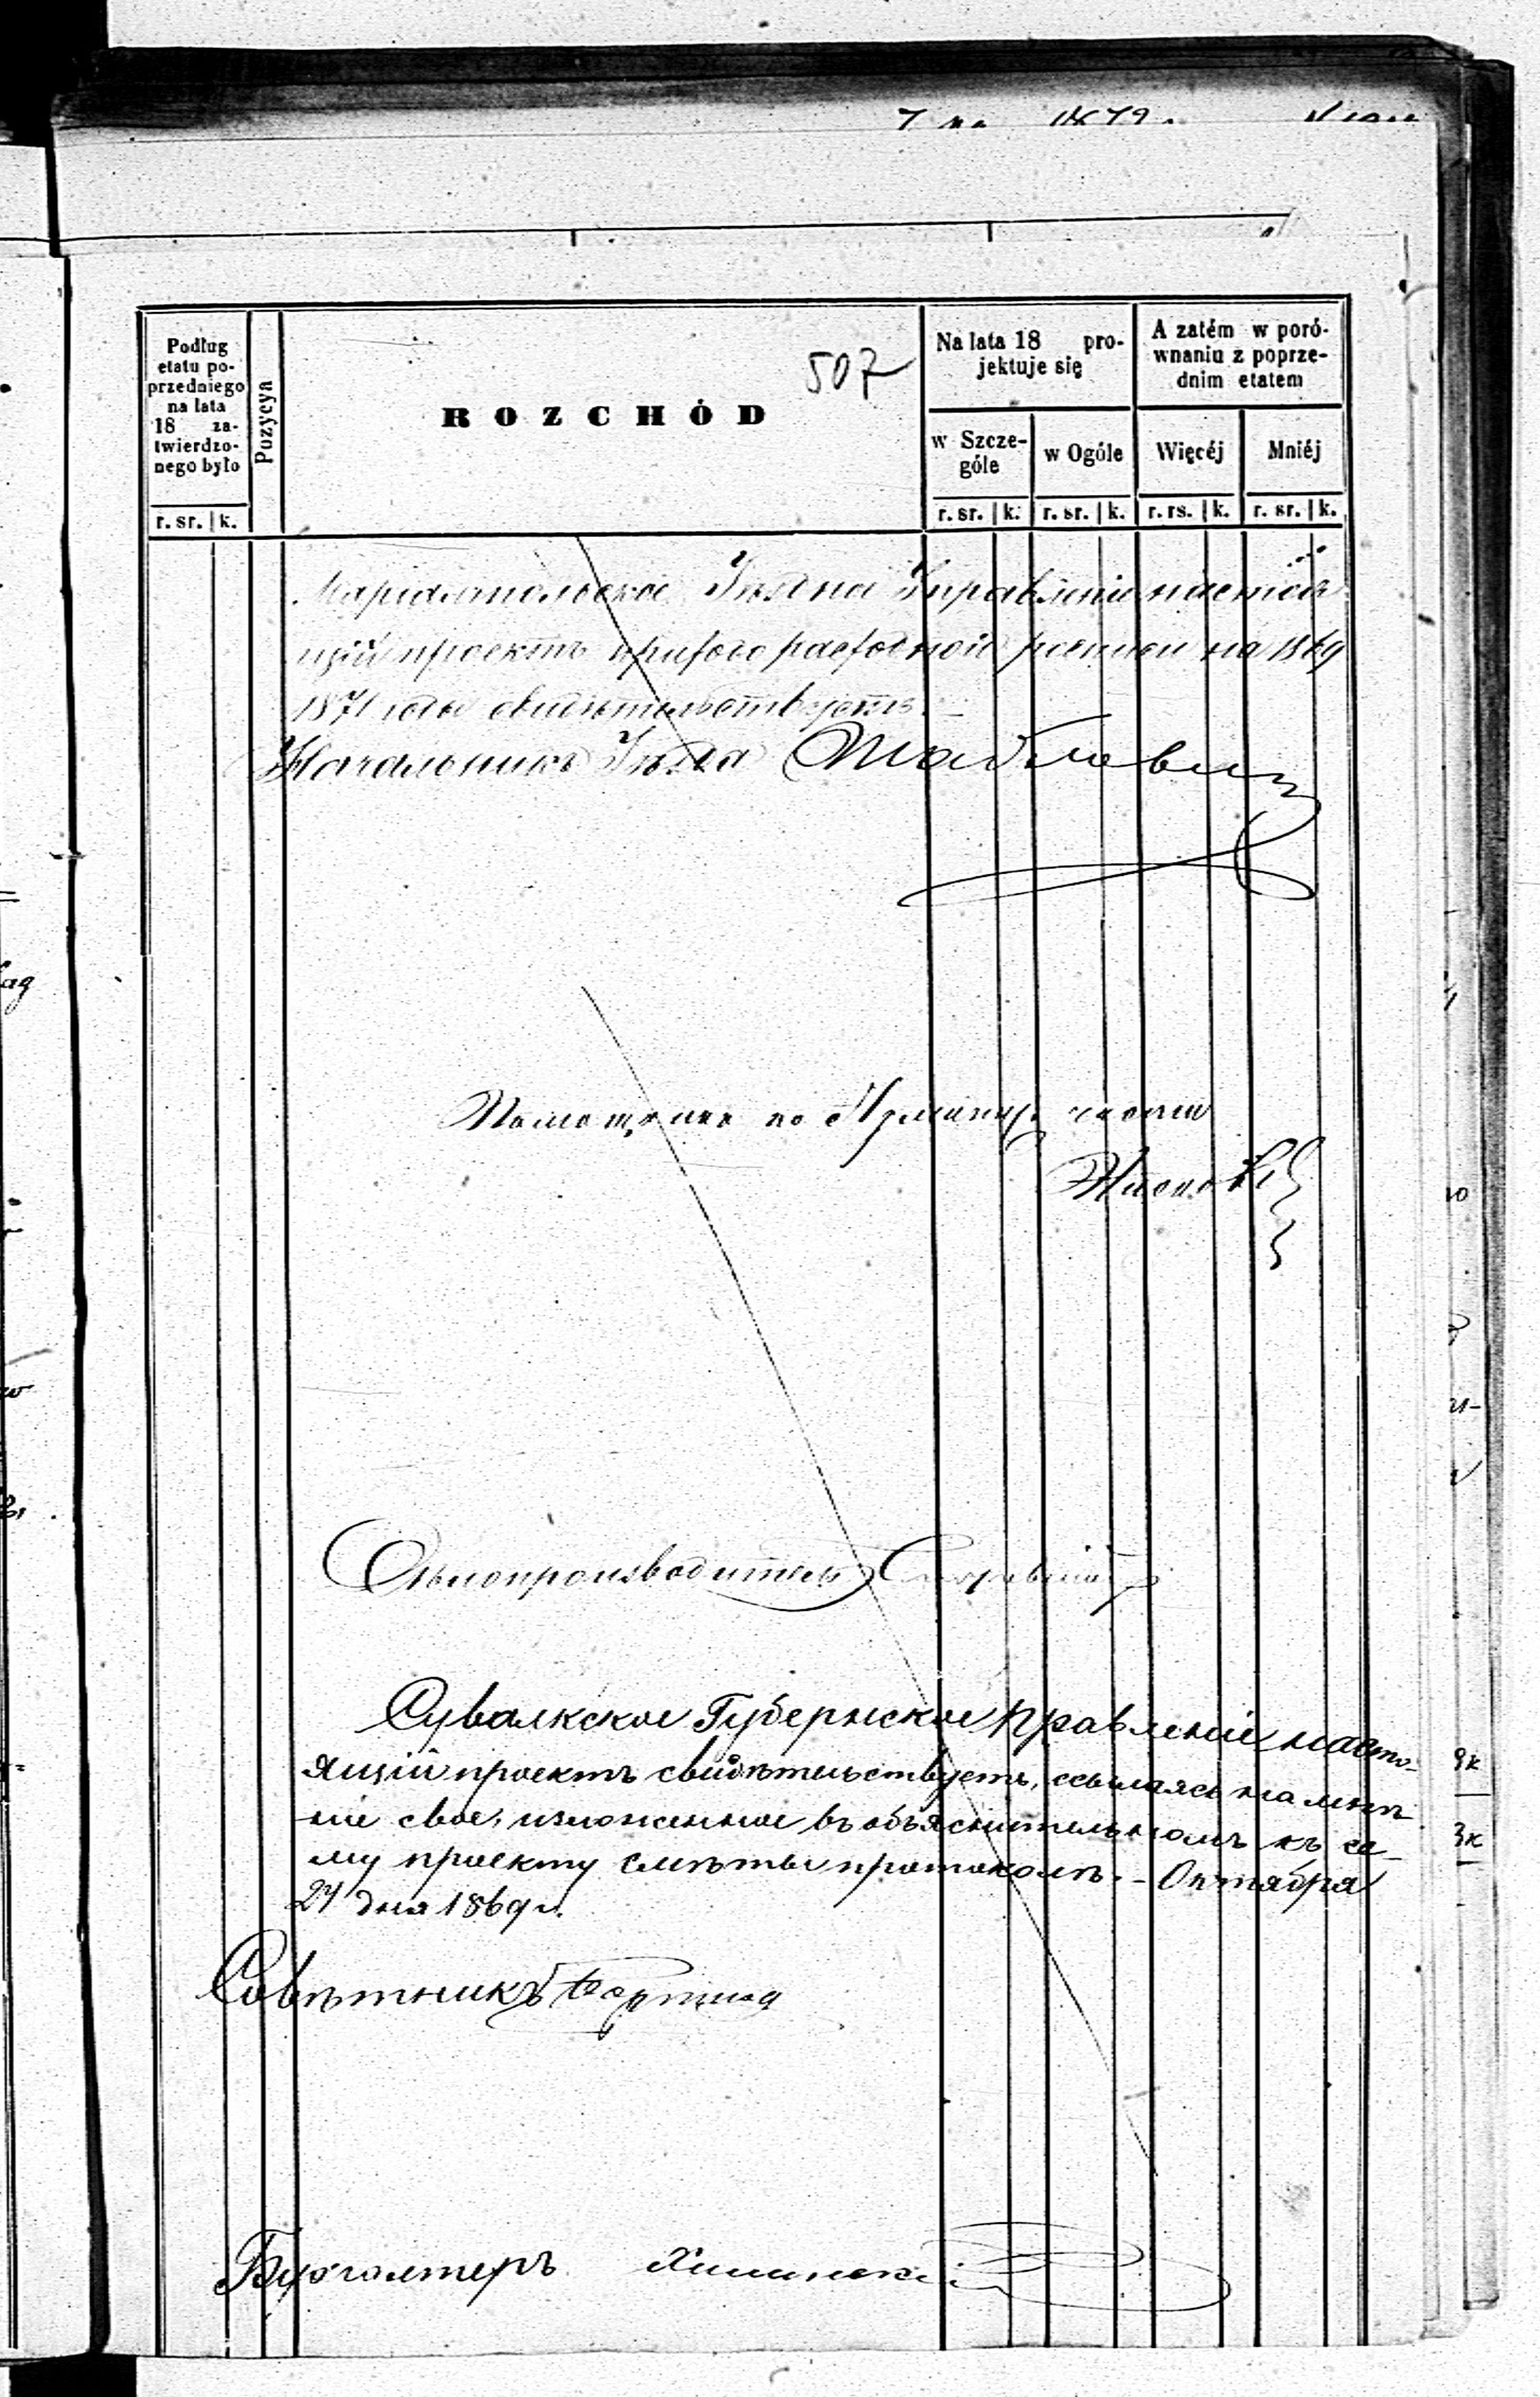 507
Podług etatu poprzedniego na lata 18 zatwierdzonego było
Pozycya
ROZCHÓD
Na lata 18 projektuje się
A zatém w porównaniu z poprzednim etatem
w Szczególe
w Ogóle
Więcéj
Mniéj
r. sr. k.
r. sr. k. r. sr. k. r. rs. k. r. sr. k.
Маріампольское Уѣздное Управленіе настоя
щій проектъ приходо расходной росписи на 1869
1871 годы свидѣтельствуетъ.
Начальникъ Уѣзда
Помощникъ по части
Дѣлопроизводитель
Сувалкское Губернское Правленіе насто-
ящій проектъ свидѣтельствуетъ, ссылаясь на мнѣ-
ніе свое, изложенное въ объяснительномъ къ се-
му проекту смѣты протоколѣ. - Октября
27 дня 1869 г.
Совѣтникъ
Бухгалтеръ